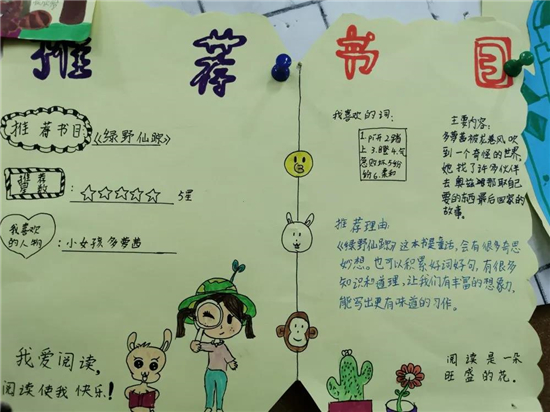 推荐书目
推荐书目:《绿野仙踪》
推荐星数: ☆☆☆☆☆ 5星
我喜欢的人物: 小女孩多萝茜
我爱阅读,
阅读使我快乐!
我喜欢的词:
主要内容:
多萝茜被龙卷风吹
到一个奇怪的世界,
她找了许多伙伴
去奥兹
要的东西最后回家的
故事。
推荐理由:
《绿野仙踪》这本书是童话,会有很多奇思
妙想。也可以积累好词好句,有很多
知识和道理,让我们有丰富的想象力,
能写出更有味道的习作。
阅读是一朵
旺盛的花。